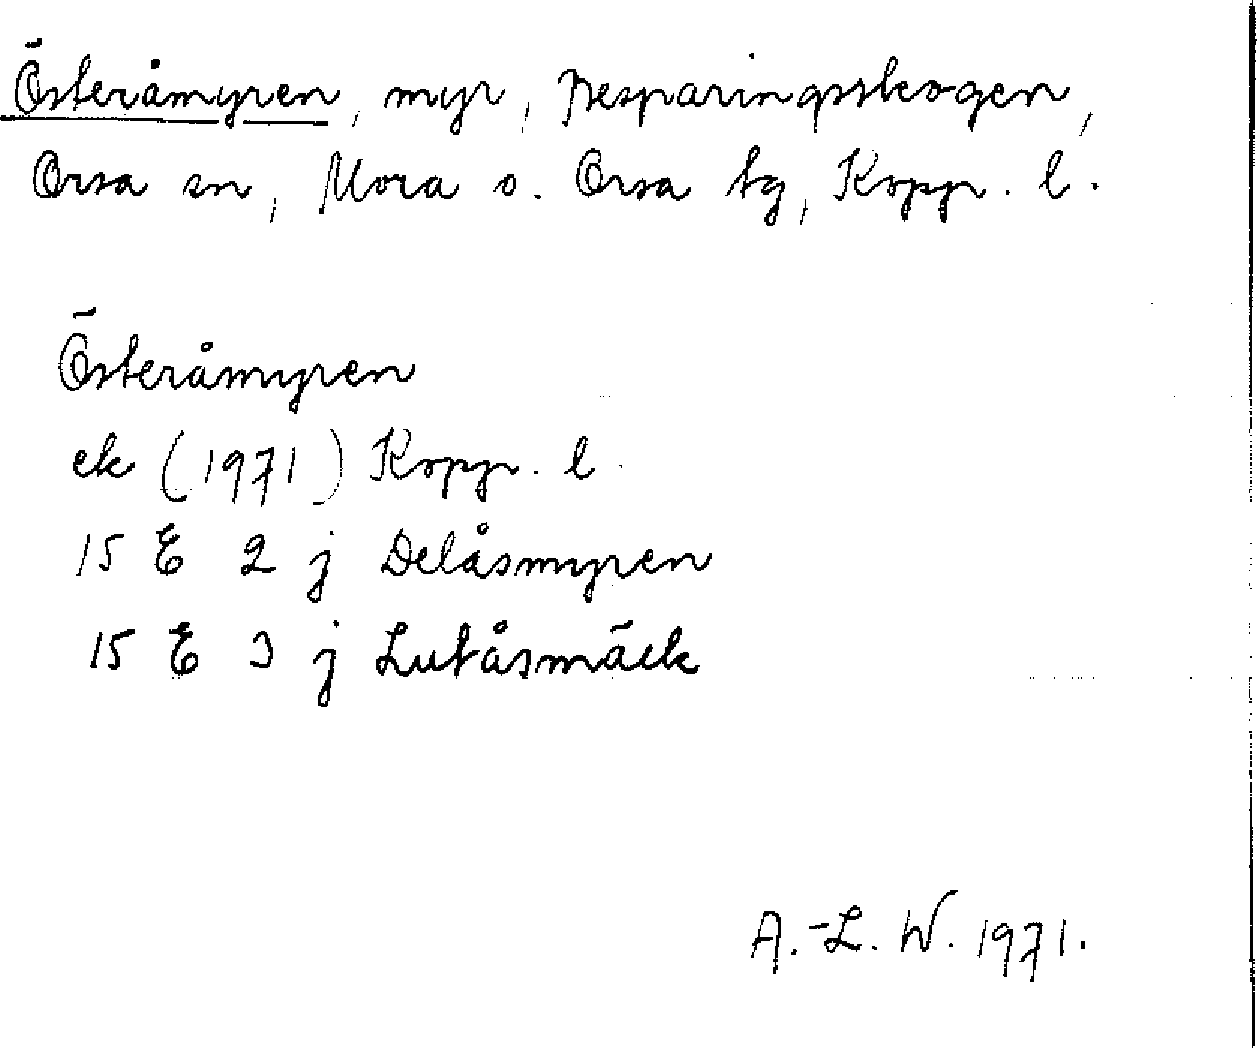 Österåmyren, myr, Besparingsskogen,
Orsa sn, Mora o. Orsa tg, Kopp. l.
Österåmyren
ek (1971) Kopp. l.
15 E 2 j Delåsmyren
15 E 3 j Lutåsmäck
A.-L. W. 1971.